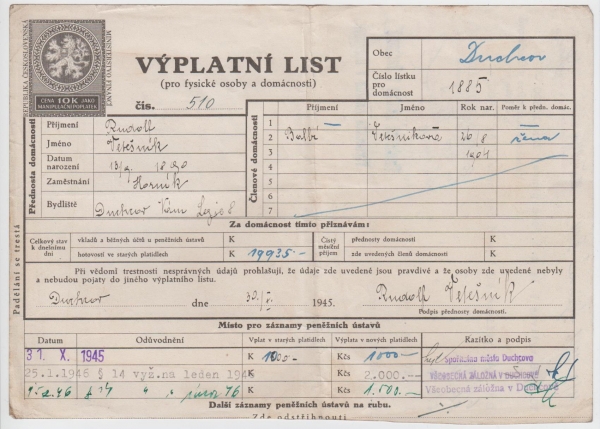 REPUBLIKA ČESKOSLOVENSKÁ
MINISTERSTVO FINANCÍ
CENA 10K JAKO
MANIPULAČNÍ POPLATEK
VÝPLATNÍ LIST
(pro fysické osoby a domácnosti)
čís. 510
Obec Duchcov
Číslo lístku pro domácnost 1885
Přednosta domácnosti
Příjmení Rudolf
Jméno Vetešník
Datum narození 13/9. 1890
Zaměstnání Horník
Bydliště Duchcov Nám Legií 8
Členové domácnosti
Příjmení Jméno Rok nar. Poměr k předn. domác.
1
2 Vetešníková 26/8 žena
3 1901
4
5
6
7
Za domácnost tímto přiznávám:
Celkový stav k dnešnímu dni
vkladů a běžných účtů u peněžních ústavů K
hotovosti ve starých platidlech K 19935.-
Čistý měsíční příjem
přednosty domácnosti K
zde uvedených členů domácnosti K
Při vědomí trestnosti nesprávných údajů prohlašuji, že údaje zde uvedené jsou pravdivé a že osoby zde uvedené nebyly
a nebudou pojaty do jiného výplatního listu.
Duchcov dne 30./X. 1945. Rudolf Vetešník
Podpis přednosty domácnosti.
Padělání se trestá
Místo pro záznamy peněžních ústavů
Datum Odůvodnění Výplat v starých platidlech Výplat v nových platidlech Razítko a podpis
31. X. 1945 K 1000.- Kčs 1000.- Spořitelna města Duchcova
25.1.1946 § 14 vyž.na leden 194 K Kčs 2.000.- VŠEOBECNÁ ZÁLOŽNA V DUCHCOVĚ
46 § 14 " " únor 46 K Kčs 1.500.- Všeobecná záložna v Duchcově
Další záznamy peněžních ústavů na rubu.
Zde odstřihnouti